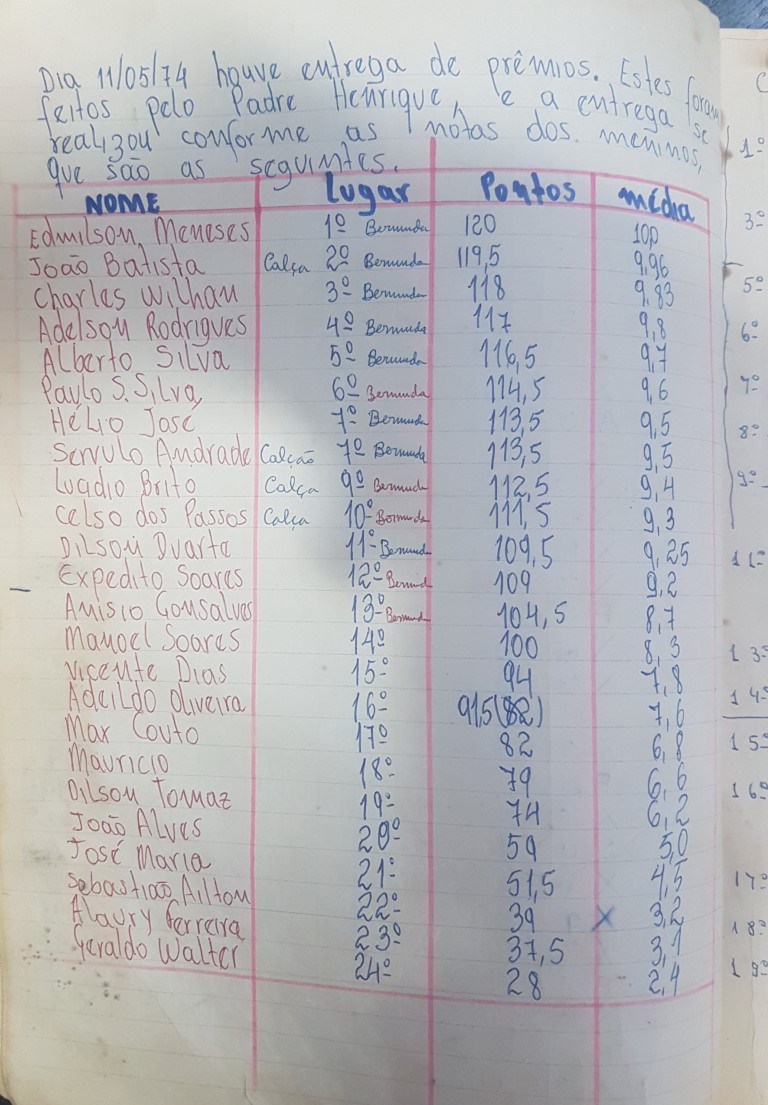 Dia 11/05/74 houve entrega de prêmios. Estes foram
feitos pelo Padre Henrique, e a entrega se
realizou conforme as notas dos meninos,
que são as seguintes.
NOME Lugar Pontos média
Edmilson Meneses 1º Bermuda 120 100
João Batista Calça 2º Bermuda 119,5 9,96
Charles Wilhan 3º Bermuda 118 9,83
Adelson Rodrigues 4º Bermuda 117 9,8
Alberto Silva 5º Bermuda 116,5 9,7
Paulo S. Silva 6º Bermuda 114,5 9,6
Hélio José 7º Bermuda 113,5 9,5
Servulo Andrade Calção 7º Bermuda 113,5 9,5
Brito Calça 9º Bermuda 112,5 9,4
Celso dos Passos Calça 10º Bermuda 111,5 9,3
Dilson Duarte 11º Bermud 109,5 9,25
Expedito Soares 12º Bermud 109 9,2
Anisio Gonsalves 13º Bermud 104,5 8,7
Manoel Soares 14º 100 8,3
Vicente Dias 15º 94 7,8
Adeildo Oliveira 16º 91,5 (82) 7,6
Max Couto 17º 82 6,8
Mauricio 18º 79 6,6
Dilson Tomaz 19º 74 6,2
João Alves 20º 59 5,0
José Maria 21º 51,5 4,5
Sebastião Ailton 22º 39 X 3,2
Alaury Ferreira 23º 37,5 3,1
Geraldo Walter 24º 28 2,4
1º
3º
5º
6º
7º
8º
9º
11º
13º
14º
15º
16º
17º
18º
19º